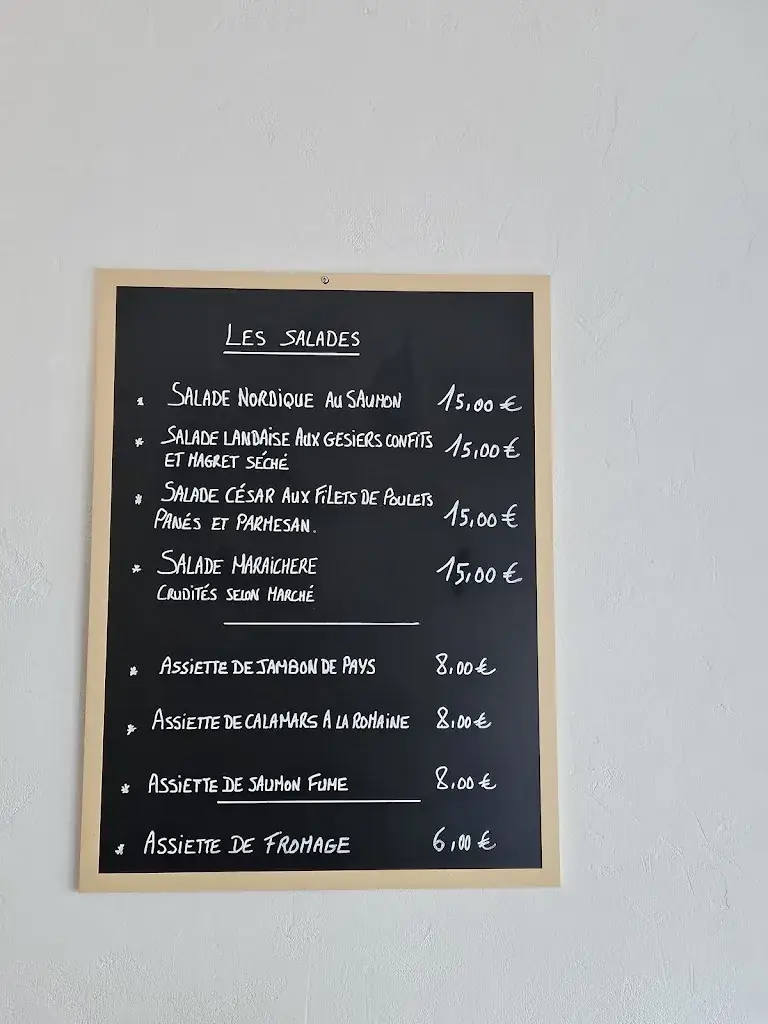 LES SALADES
* SALADE NORDIQUE AU SAUMON 15,00 €
* SALADE LANDAISE AUX GESIERS CONFITS 15,00 €
ET MAGRET SÉCHÉ
* SALADE CÉSAR AUX FILETS DE POULETS
PANÉS ET PARMESAN. 15,00 €
* SALADE MARAICHERE 15,00 €
CRUDITÉS SELON MARCHÉ
* ASSIETTE DE JAMBON DE PAYS 8,00 €
* ASSIETTE DE CALAMARS A LA ROMAINE 8,00 €
* ASSIETTE DE SAUMON FUME 8,00 €
* ASSIETTE DE FROMAGE 6,00 €